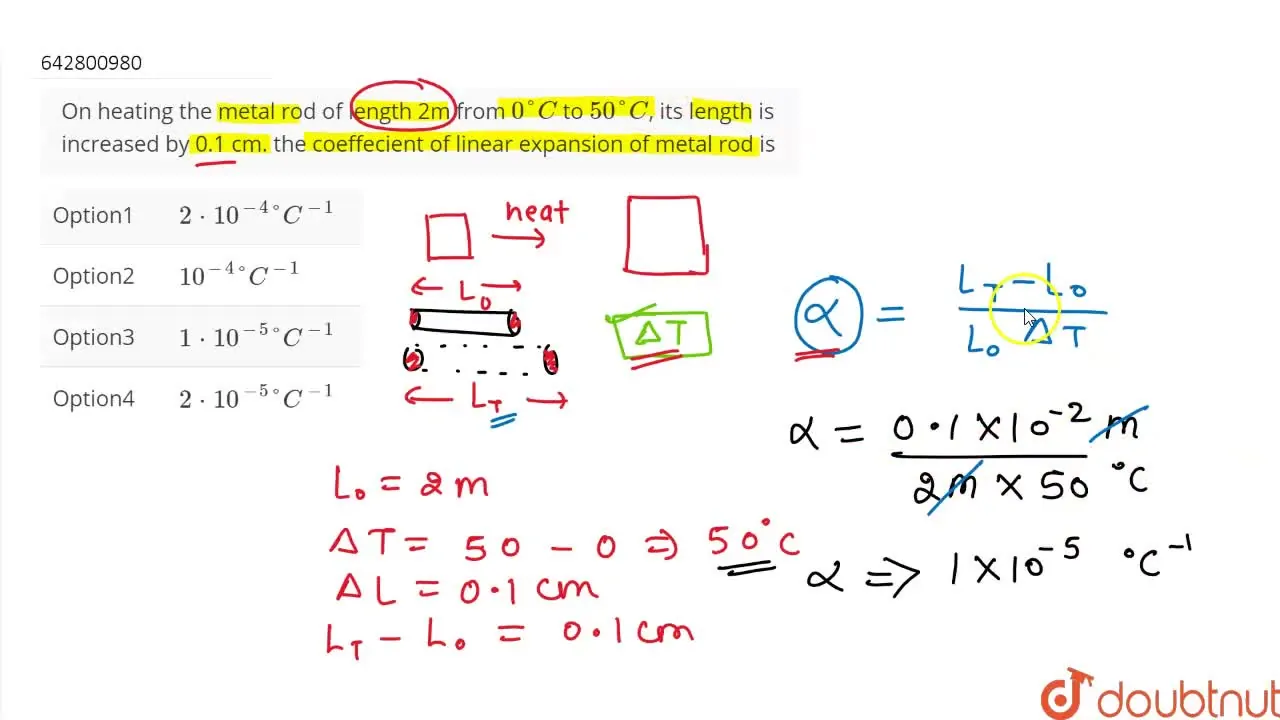 642800980
On heating the metal rod of length 2m from 0°C to 50°C, its length is
increased by 0.1 cm. the coeffecient of linear expansion of metal rod is
Option1 2 · 10⁻⁴°C⁻¹
Option2 10⁻⁴°C⁻¹
Option3 1 · 10⁻⁵°C⁻¹
Option4 2 · 10⁻⁵°C⁻¹
heat
L₀
ΔT
L_T
α = (L_T − L₀) / (L₀ ΔT)
α = (0.1 × 10⁻² m) / (2m × 50 °C)
α ⇒ 1 × 10⁻⁵ °C⁻¹
L₀ = 2m
ΔT = 50 − 0 ⇒ 50°C
ΔL = 0.1 cm
L_T − L₀ = 0.1 cm
doubtnut